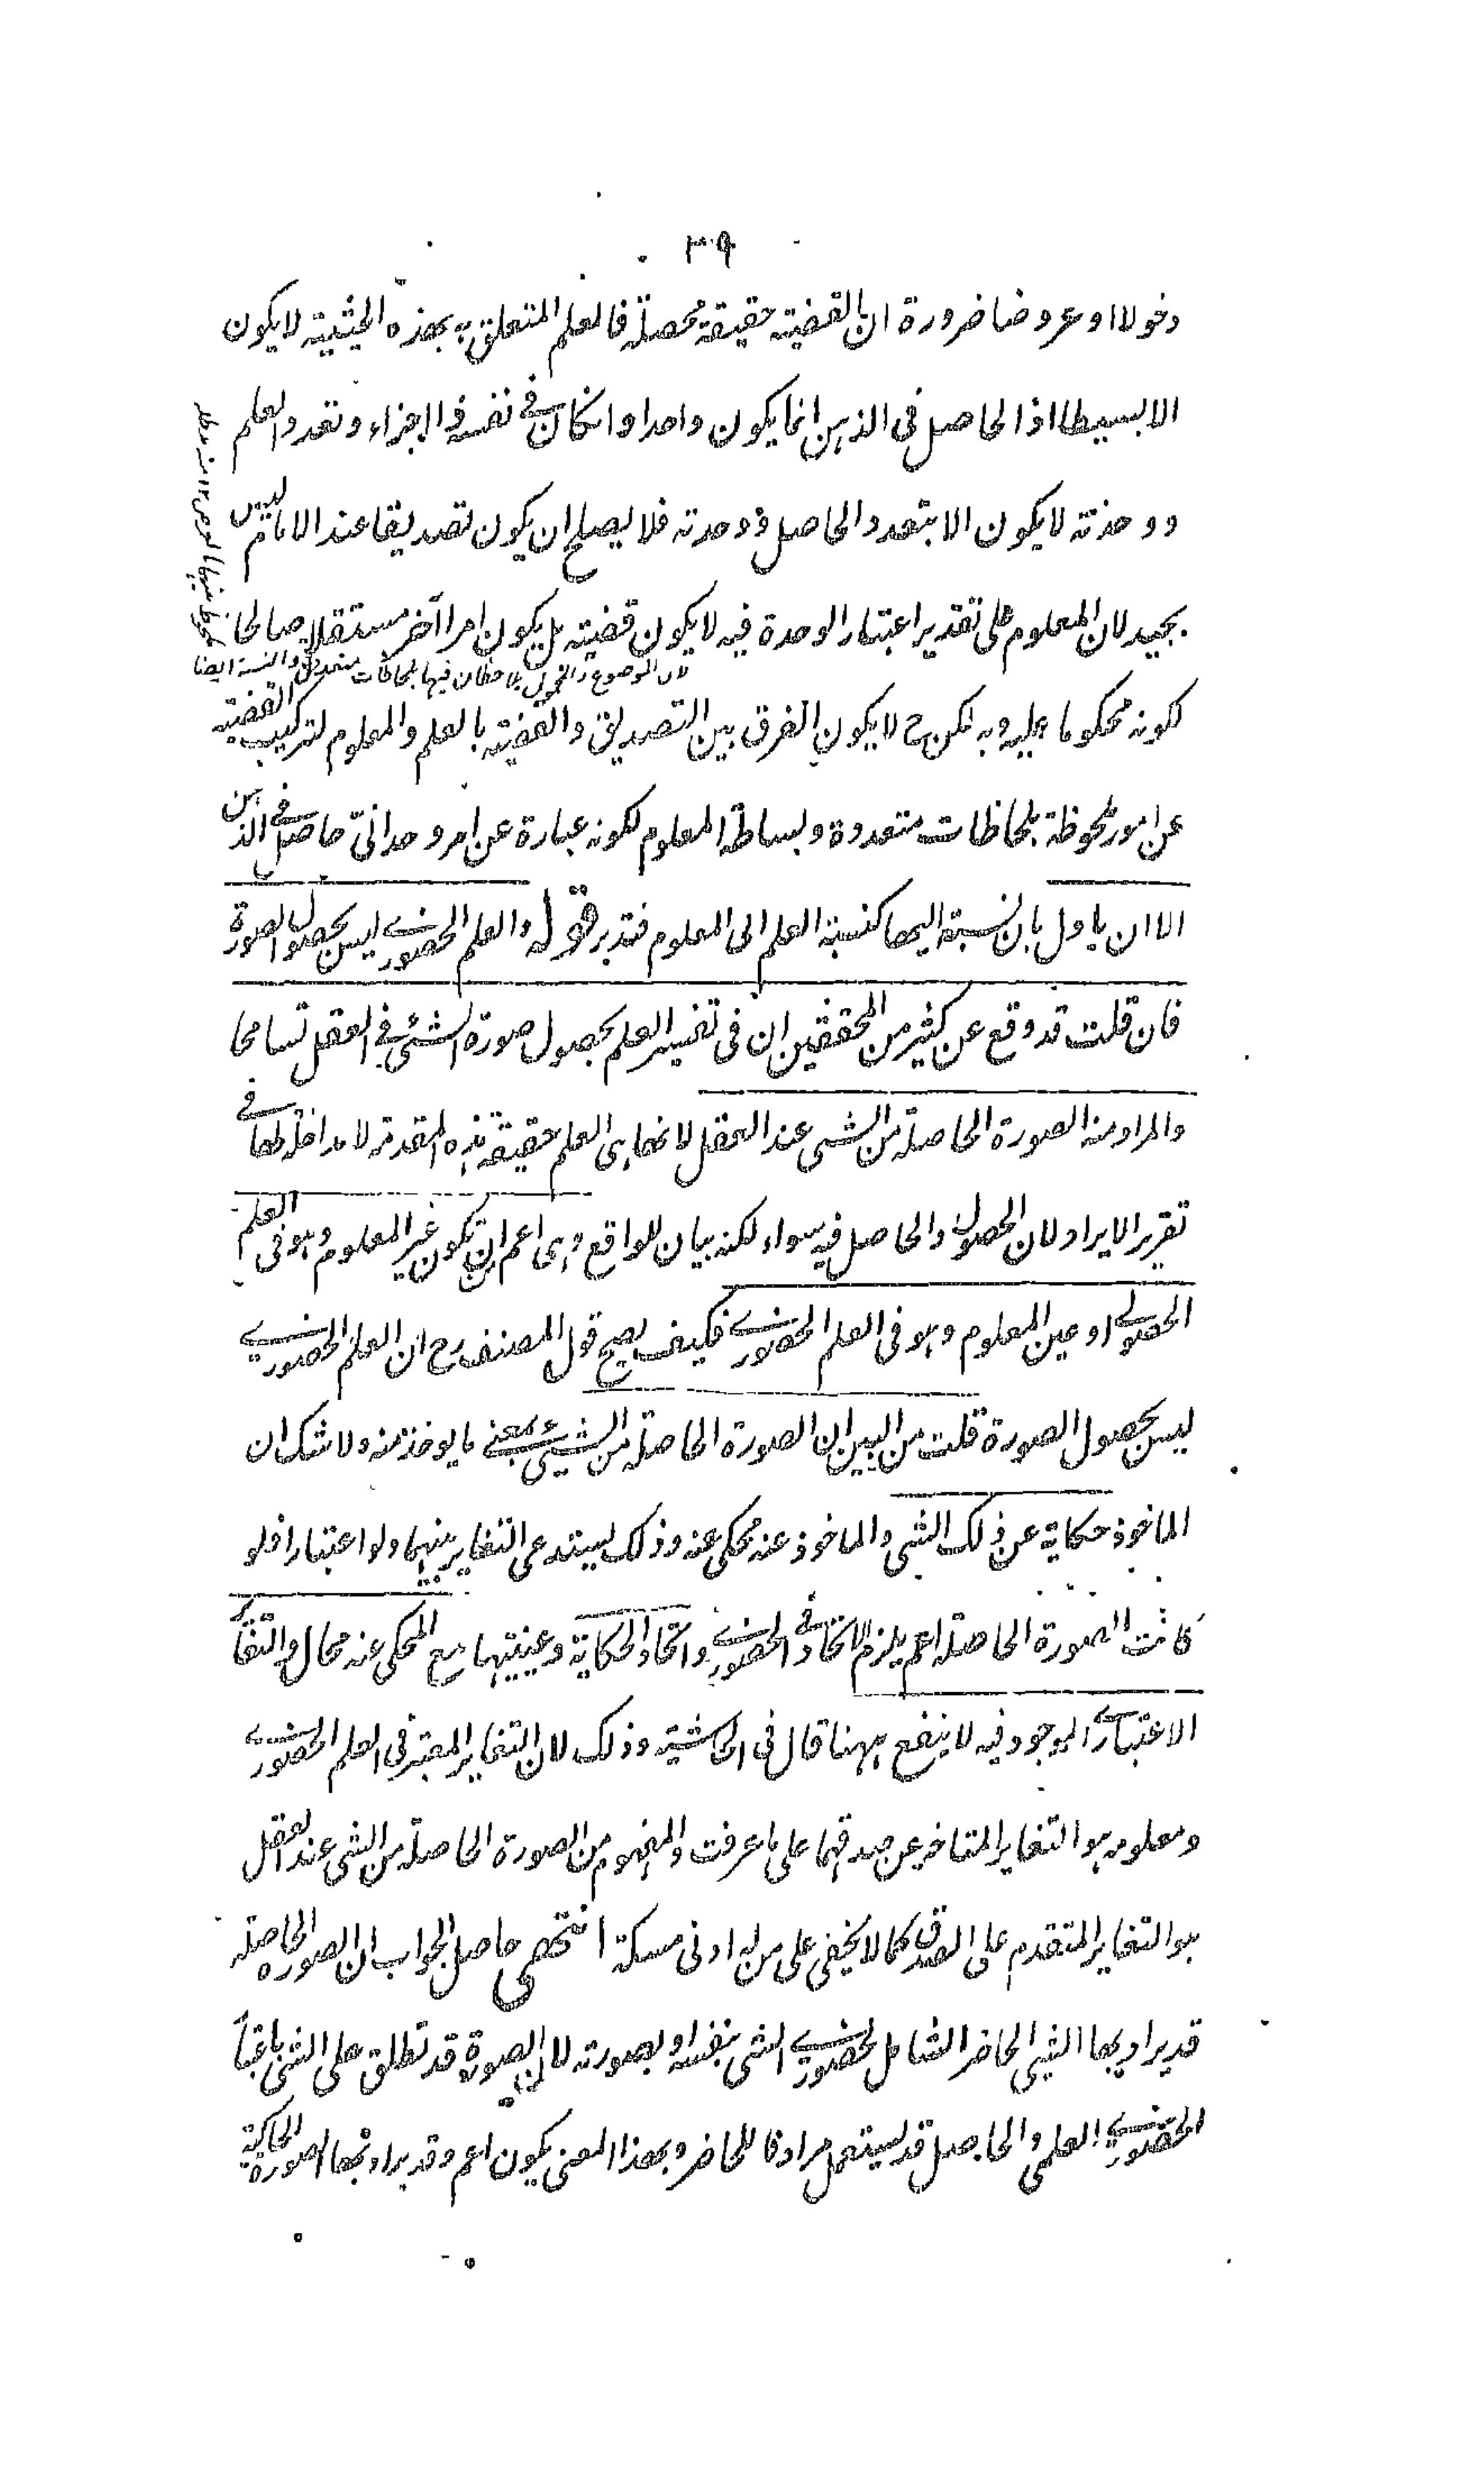 ٣٩
دخولا او عروضا ضرورة ان القضية حقيقة محصلة فالعلم المتعلق بها بهذه الحيثية لا يكون
الا بسيطا اذ الحاصل فى الذهن انما يكون واحدا وانكان فى نفسه ذا اجزاء وتعدد العلم
ووحدته لا يكون الا بتعدد الحاصل ووحدته فلا يصلح ان يكون تصديقا عند الامام ليس
بجيد لان المعلوم على تقدير اعتبار الوحدة فيه لا يكون قضية بل يكون امرا آخر مستقلا صالحا
لان الموضوع والمحمول يلاحظان فيها بلحاظات متعددة والنسبة ايضا
ملحوظ فيها ١٢ منه مدظله
لكونه محكوما عليه وبه لكن ح لا يكون الفرق بين التصديق والقضية بالعلم والمعلوم لتركيب القضية
عن امور ملحوظة بلحاظات متعددة وبساطة المعلوم لكونه عبارة عن امر وحدانى حاصل فى الذهن
الا ان ياول بان نسبة اليها كنسبة العلم الى المعلوم فتدبر قوله والعلم الحضورى ليس بحصول الصورة
فان قلت قد وقع عن كثير من المحققين ان فى تفسير العلم بحصول صورة الشئ فى العقل تسامحا
والمراد منه الصورة الحاصلة من الشى عند العقل لانها هى العلم حقيقة هذه المقدمة لا مداخلة لها فى
تقرير الايراد لان الحصول والحاصل فيه سواء لكنه بيان للواقع وهى اعم ان تكون غير المعلوم وهو فى العلم
الحصولى او عين المعلوم وهو فى العلم الحضورى فكيف يصح قول المصنف رح ان العلم الحضورى
ليس بحصول الصورة قلت من البين ان الصورة الحاصلة من الشئ بمعنى ما يوخذ منه ولا شك ان
الماخوذ حكاية عن ذلك الشى والماخوذ عنه محكى عنه وذلك يستدعى التغاير بينهما ولو اعتبارا فلو
كانت الصورة الحاصلة اعم يلزم الاتحاد فى الحضورى واتحاد الحكاية وعينيتها مع المحكى عنه محال والتغاير
الاعتبارى الموجود فيه لا ينفع ههنا قال فى الحاشية وذلك لان التغاير المعتبر فى العلم الحضورى
ومعلومه هو التغاير المتاخر عن صدقهما على ما عرفت والمفهوم من الصورة الحاصلة من الشى عند العقل
هو التغاير المتقدم على الصدق كما لا يخفى على من له ادنى مسكة انتهى حاصل الجواب ان الصورة الحاصلة
قد يراد بها الشى الحاضر الشامل لحضورى الشى بنفسه او بصورته لان الصورة قد تطلق على الشى باعتبار
الحضورى العلمى والحاصل قد يستعمل مرادفا للحاضر وبهذا المعنى يكون اعم وقد يراد بها الصورة الحاكية